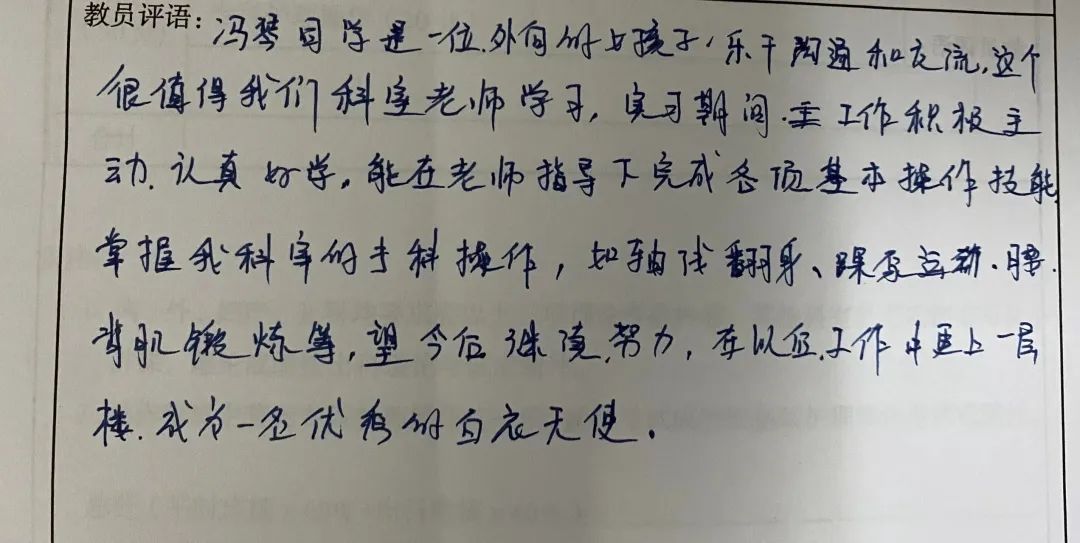 教员评语:冯琴同学是一位外向的女孩子,乐于沟通和交流,这个
很值得我们科室老师学习,实习期间.工作积极主
动.认真好学,能在老师指导下完成各项基本操作技能,
掌握我科室的专科操作,如轴线翻身、踝泵运动.腰.
背肌锻炼等,望今后继续努力,在以后工作中更上一层
楼.成为一名优秀的白衣天使。